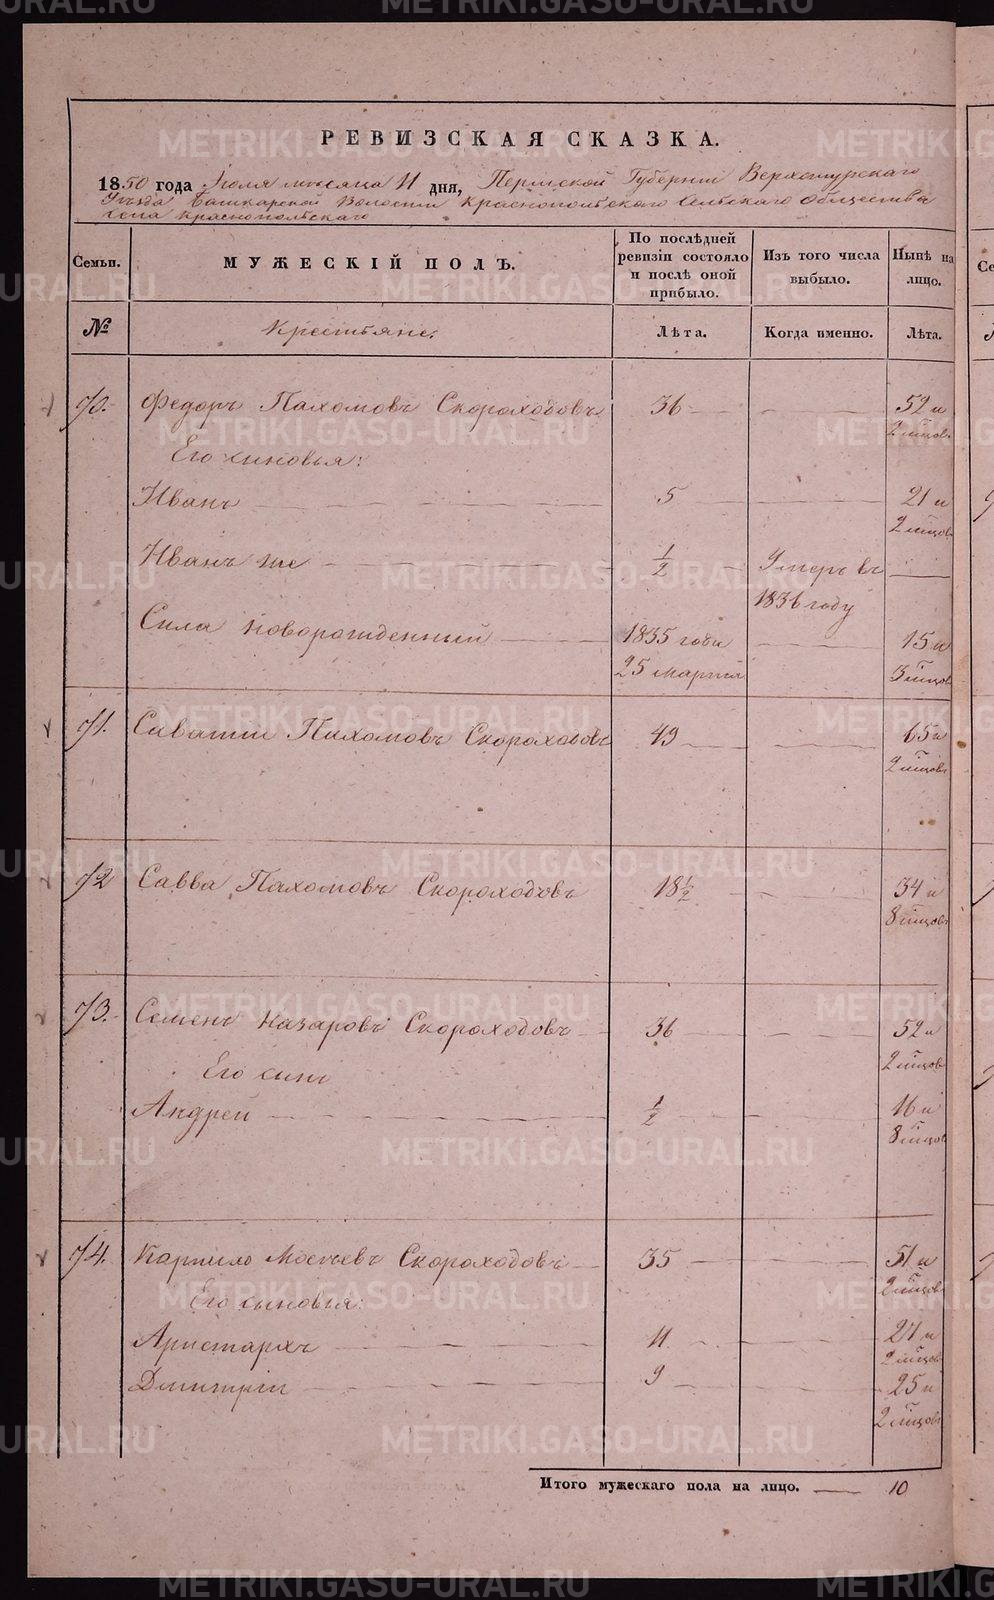 РЕВИЗСКАЯ СКАЗКА.
1850 года Июля месяца 11 дня, Пермской Губернии Верхотурскаго
Уезда Башкарской Волости Краснопольскаго Сельскаго Общества
села Краснопольскаго
Семьи. МУЖЕСКІЙ ПОЛЪ. По послѣдней ревизіи состояло и послѣ оной прибыло. Изъ того числа выбыло. Нынѣ на лицо.
№ Крестьяне. Лѣта. Когда именно. Лѣта.
70. Федоръ Пахомовъ Скороходовъ 36 52 и
2 мѣцовъ
Его сыновья:
Иванъ 5 21 и
2 мѣцовъ
Иванъ же 1/2 Умеръ въ
1836 году
Сила новорожденный 1835 года 15 и
25 марта 3 мѣцов
71. Саватій Пахомовъ Скороходовъ 49 65 и
2 мѣцовъ
72 Савва Пахомовъ Скороходовъ 18 1/2 34 и
8 мѣцовъ
73. Семенъ Назаровъ Скороходовъ 36 52 и
2 мѣцовъ
Его сынъ
Андрей 1/2 16 и
8 мѣцовъ
74. Карпило Мосеевъ Скороходовъ 35 51 и
2 мѣцовъ
Его сыновья:
Аристархъ 11 27 и
2 мѣцовъ
Дмитрій 9 25 и
2 мѣцовъ
Итого мужескаго пола на лицо. 10
METRIKI.GASO-URAL.RU